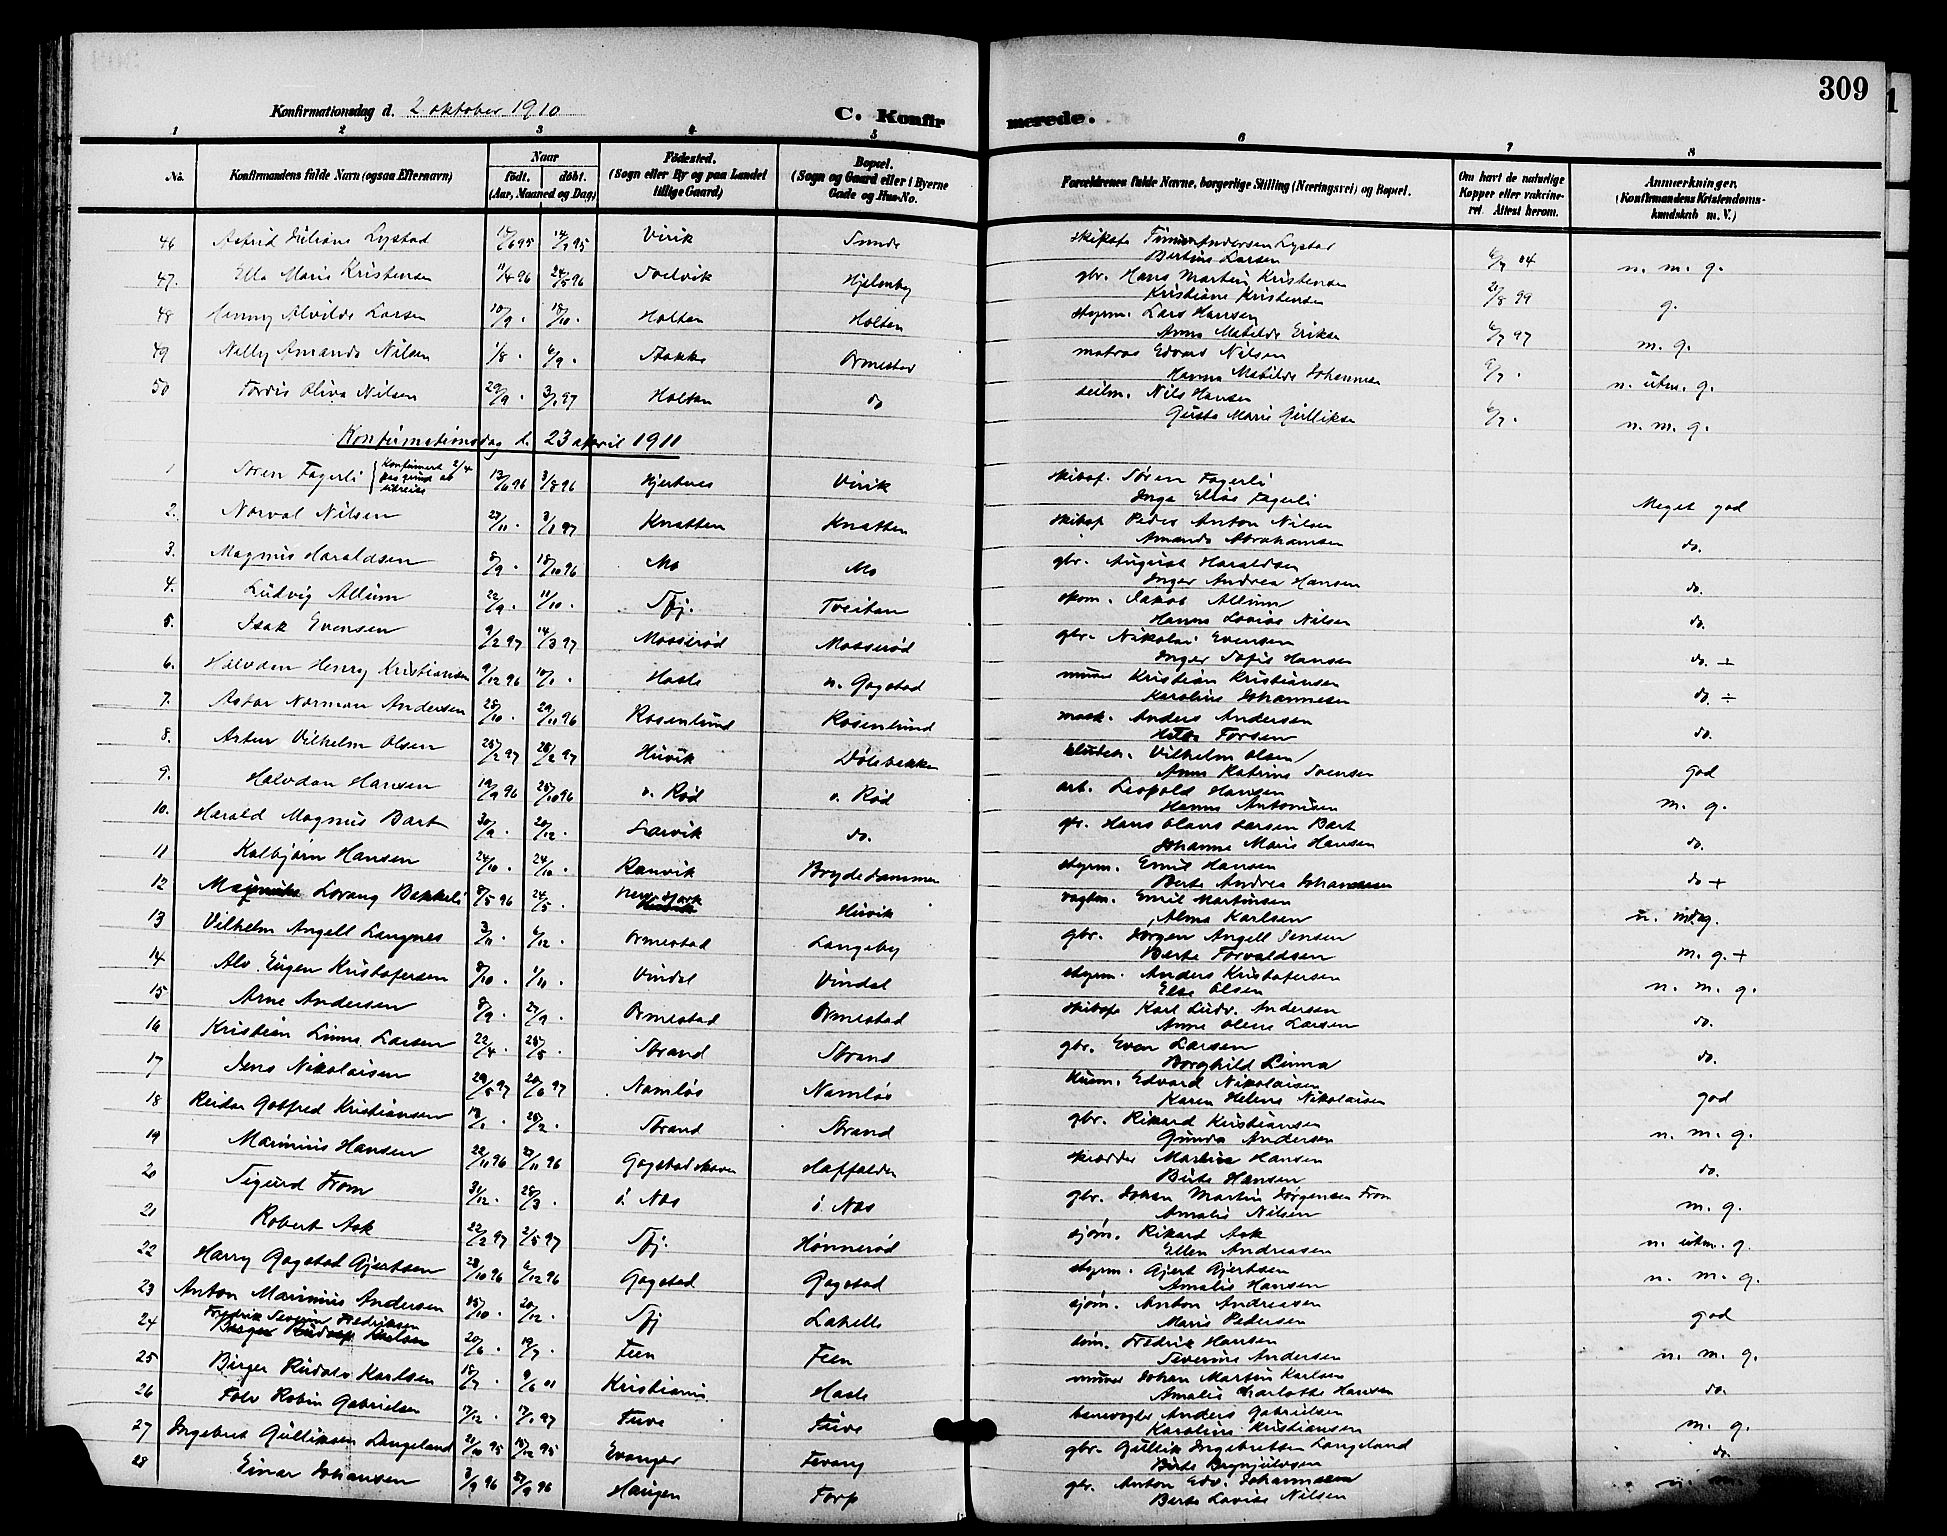 309
Konfirmationsdag d. 2 oktober 1910
C. Konfirmerede.
1 2 3 4 5 6 7 8
No. Konfirmandens fulde Navn (ogsaa Efternavn) Naar født. døbt. (Aar, Maaned og Dag) Fødested. (Sogn eller By og paa Landet tillige Gaard) Bopæl. (Sogn og Gaard eller i Byerne Gade og Hus-No. Forældrenes fulde Navne, borgerlige Stilling (Næringsvei) og Bopæl. Om havt de naturlige Kopper eller vakcineret. Attest herom. Anmærkninger. (Konfirmandens Kristendomskundskab m. V.)
46 Astrid Juliane Lystad 14/9 95 Virik Sunde Andersen Lystad
Bertine Larsen 04 n. m. g.
47. Ella Marie Kristensen 11/4 96 24/5 96 Hjelmby gbr. Hans Martin Kristensen
Kristiane Kristensen 99 g.
48 Henny Alvilde Larsen 10/9 . 18/10 . Holtan Holtan styrm. Lars Hansen
Anna Matilde Eriksen 97 m. g.
49 Nelly Amanda Nilsen 1/8 . 6/9 . Stokke Ormestad matros Edvard Nilsen
Hanna Matilde Johannesen n. utm. g.
50 Tordis Oliva Nilsen 29/9 . 3/1 97 Holtan do seilm. Nils Hansen
Gusta Marie Gulliksen n. m. g.
Konfirmationsdag d. 23 april 1911
1 Søren Fagerli Konfirmert 2/4 paa grund af utreise 13/6 96 3/8 96 Hjertnes Virik skibsf. Søren Fagerli
Inga Elise Fagerli Meget god
2. Norval Nilsen 27/11 . 3/1 97 Knatten Knatten skibsf Peder Anton Nilsen
Amanda Abrahamsen do.
3. Magnus Haraldsen 8/9 . 18/10 96 Mo Mo gbr. August Haraldsen
Inger Andrea Hansen do.
4. Ludvig Allum 22/9 . 11/10 . Sfj. Tveitan skom. Jakob Allum
Hanna Lovise Nilsen do.
5. Isak Evensen 9/2 97 14/3 97 Mosserød Mosserød gbr. Nikolai Evensen
Inger Sofie Hansen do. +
6. Halvdan Henry Kristiansen 9/12 96 10/1 . Hasle n. Gogstad murer Kristian Kristiansen
Karoline Johannesen do. ÷
7. Astor Norman Andersen 28/10 . 29/11 96 Rosenlund Rosenlund mask. Anders Andersen
Hilda Torsen do.
8. Artur Vilhelm Olsen 25/2 97 28/2 97 Huvik Dølebakken Vilhelm Olsen
Anna Katrine Svensen god
9. Halvdan Hansen 19/9 96 25/10 96 v. Rød v. Rød arb. Leopold Hansen
Hanna Antonisen m. g.
10. Harald Magnus Bart 30/9 . 20/12 . Larvik do. Hans Olaus Larsen Bart
Johanne Marie Hansen do.
11 Kolbjørn Hansen 24/10 . Ranvik Brydedammen styrm. Emil Hansen
Berte Andrea Johannesen do +
12 Lorang Bakkeli 8/5 96 24/5 . New York Huvik vagtm. Emil Martinsen
Alma Karlsen
13 Vilhelm Angell Langnes 3/11 . 6/12 . Ormestad Langeby gbr. Jørgen Angell Jensen
Berte Torvaldsen m. g. +
14 Alv. Eugen Kristofersen 8/10 . 1/11 . Vindal Vindal styrm. Anders Kristofersen
Else Olsen n. m. g.
15 Arne Andersen 8/9 . 27/9 . Ormestad Ormestad skibsf. Karl Ludv. Andersen
Anne Olene Larsen do.
16 Kristian Linna Larsen 22/4 . 25/5 . Strand Strand gbr. Even Larsen
Borghild Linna do.
17 Jens Nikolaisen 29/5 97 20/6 97 Namløs Namløs husm. Edvard Nikolaisen
Karen Helene Nikolaisen god
18 Reidar Gotfred Kristiansen 13/1 . 28/2 . Strand Strand gbr. Rikard Kristiansen
Gunda Andersen n. m. g.
19 Marinius Hansen 22/11 96 27/11 96 Gogstadskoven Haffalden skrædder Martin Hansen
Berte Hansen do.
20 Sigurd Fron 31/12 . 28/3 . ö. Nes ö. Nes gbr. Johan Martin Jørgensen Fron
Amalie Nilsen m. g.
21 Robert Ask 22/2 97 2/5 97 Sfj. Hønnerød sjøm. Rikard Ask
Ellen Andreasen n. utm. g.
22 Harry Gogstad Gjertsen 28/10 96 6/12 96 Gogstad Gogstad styrm. Gjert Gjertsen
Amalie Hansen n. m. g.
23 Anton Marinius Andersen 15/10 . 20/12 . Sfj Lahelle sjøm. Anton Andreasen
Marie Pedersen god
24 Fredrik Severin Fredriksen 20/6 . 19/7 . Feen Feen Fredrik Hansen
Severine Andersen n. m. g.
25 Birger Rudolv Karlsen 15/7 . 9/6 01 Kristiania Hasle murer Johan Martin Karlsen
Amalie Charlotte Hansen do.
26 Tolv Robin Gabrielsen 17/12 . 17/1 97 Tuve Tuve banevogter Anders Gabrielsen
Karoline Kristiansen m. g.
27 Ingebret Gulliksen Langeland 21/10 95 15/12 95 Evanger Fevang gbr. Gullik Ingebretsen Langeland
Birte Brynjulvsen do.
28 Einar Johansen 3/9 96 27/9 96 Haugen Torp gbr. Anton Edv. Johannesen
Berte Lovise Nilsen